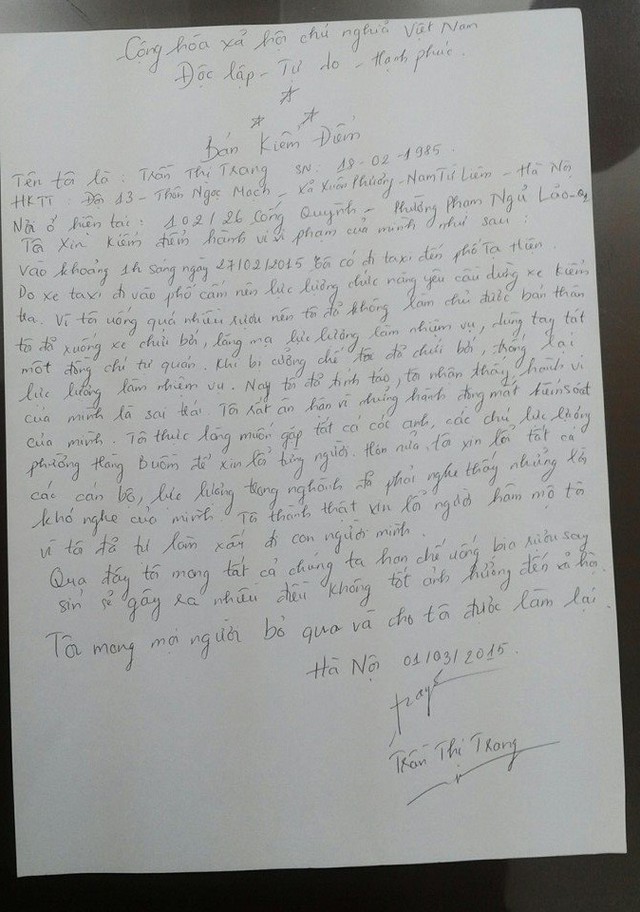 Cộng hóa xả hội chủ nghiã Việt Nam
Độc lập - Tự do - Hạnh phúc.
Bản Kiểm Điểm
Tên tôi là : Trần Thị Trang SN: 18-02-1985.
HKTT : Đội 13 - Thôn Ngọc Mạch - xã Xuân Phương - Nam Từ Liêm - Hà Nội
Nơi ở hiện tại : 102/26 Cống Quỳnh - Phường Phạm Ngũ Lão - Q1
Tôi xin kiểm điểm hành vi vi phạm của mình như sau :
Vào khoảng 1h sáng ngày 27/02/2015 tôi có đi taxi đến phố Tạ Hiện.
Do xe taxi đi vào phố cấm nên lực lượng chức năng yêu cầu dừng xe kiểm
tra. Vì tôi uống quá nhiều rượu nên tôi đã không làm chủ được bản thân
tôi đã xuống xe chửi bới, lăng mạ lực lượng làm nhiệm vụ, dùng tay tát
một đồng chí tự quản. Khi bị cưỡng chế tôi đã chửi bới, chống lại
lực lượng làm nhiệm vụ. Nay tôi đã tỉnh táo, tôi nhận thấy hành vi
của mình là sai trái. Tôi rất ân hận vì những hành động mất kiểm soát
của mình. Tôi thực lòng muốn gặp tất cả các anh, các chú lực lượng
phường Hàng Buồm để xin lỗi từng người. Hơn nữa, tôi xin lỗi tất cả
các cán bộ, lực lượng trong nghành đã phải nghe thấy những lời
khó nghe của mình. Tôi thành thật xin lỗi người hâm mộ tôi
vì tôi đã tự làm xấu đi con người mình.
Qua đây tôi mong tất cả chúng ta hạn chế uống bia rượu say
sỉn sẽ gây ra nhiều điều không tốt ảnh hưởng đến xả hội.
Tôi mong mọi người bỏ qua và cho tôi được làm lại.
Hà Nội 01/03/2015.
Trang
Trần Thị Trang